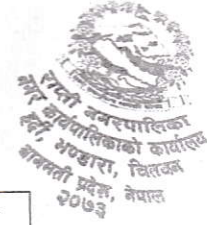 राप्ती नगरपालिका
नगर कार्यपालिकाको कार्यालय
भण्डारा, चितवन
बागमती प्रदेश, नेपाल
२०७३